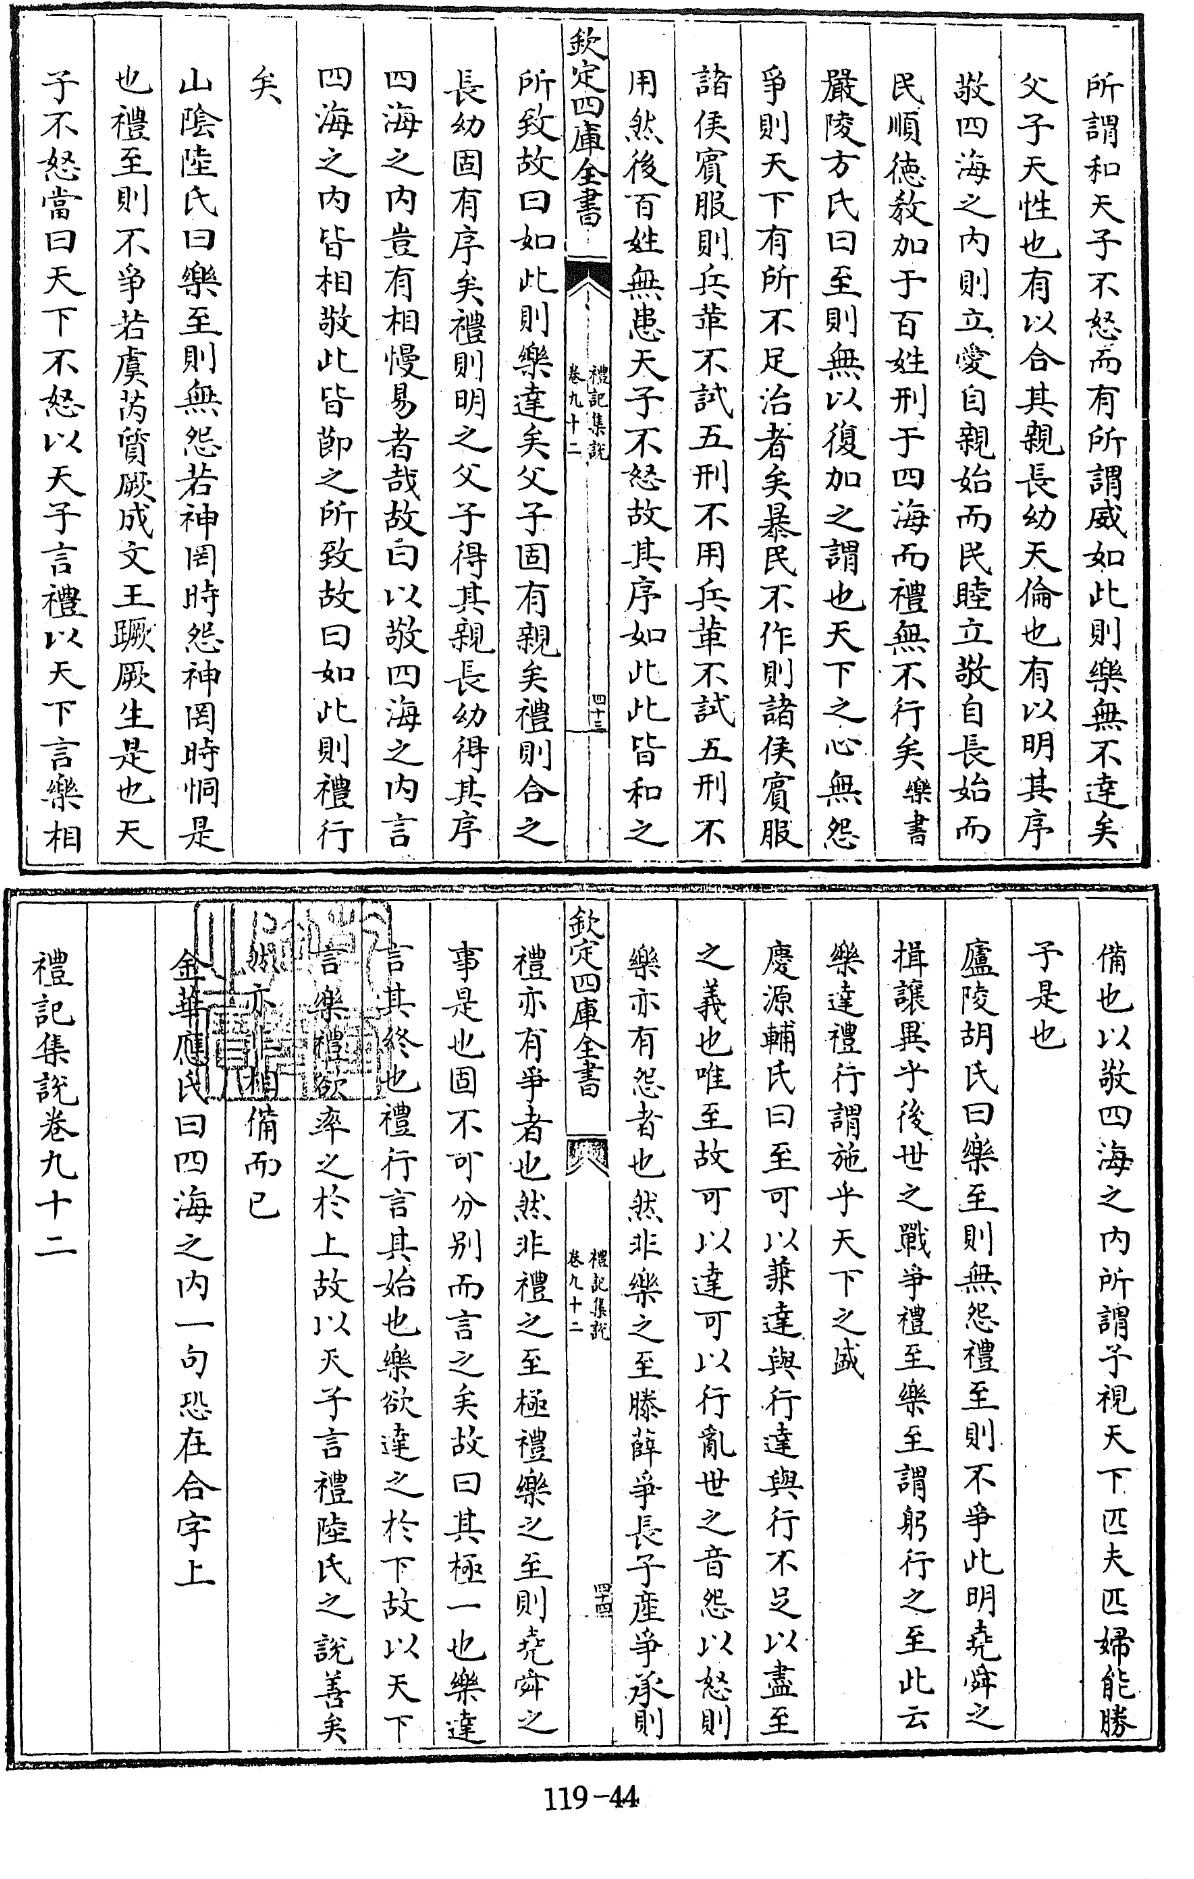 所謂和天子不怒而有所謂威如此則樂無不達矣
父子天性也有以合其親長幼天倫也有以明其序
敬四海之内則立愛自親始而民睦立敬自長始而
民順徳教加于百姓刑于四海而禮無不行矣樂書
嚴陵方氏曰至則無以復加之謂也天下之心無怨
爭則天下有所不足治者矣暴民不作則諸侯賓服
諸侯賓服則兵革不試五刑不用兵革不試五刑不
用然後百姓無患天子不怒故其序如此此皆和之
欽定四庫全書
禮記集說
卷九十二
四十三
所致故曰如此則樂達矣父子固有親矣禮則合之
長幼固有序矣禮則明之父子得其親長幼得其序
四海之内豈有相慢易者哉故曰以敬四海之内言
四海之内皆相敬此皆節之所致故曰如此則禮行
矣
山隂陸氏曰樂至則無怨若神罔時怨神罔時恫是
也禮至則不爭若虞芮質厥成文王蹶厥生是也天
子不怒當曰天下不怒以天子言禮以天下言樂相
備也以敬四海之内所謂予視天下匹夫匹婦能勝
予是也
廬陵胡氏曰樂至則無怨禮至則不爭此明堯舜之
揖讓異乎後世之戰爭禮至樂至謂躬行之至此云
樂達禮行謂施乎天下之盛
慶源輔氏曰至可以兼達與行達與行不足以盡至
之義也唯至故可以達可以行亂世之音怨以怒則
樂亦有怨者也然非樂之至滕薛爭長子產爭承則
欽定四庫全書
禮記集說
卷九十二
四十四
禮亦有爭者也然非禮之至極禮樂之至則堯舜之
事是也固不可分别而言之矣故曰其極一也樂達
言其終也禮行言其始也樂欲達之於下故以天下
言樂禮欲率之於上故以天子言禮陸氏之說善矣
然亦非相備而已
金華應氏曰四海之内一句恐在合字上
禮記集說卷九十二
119-44